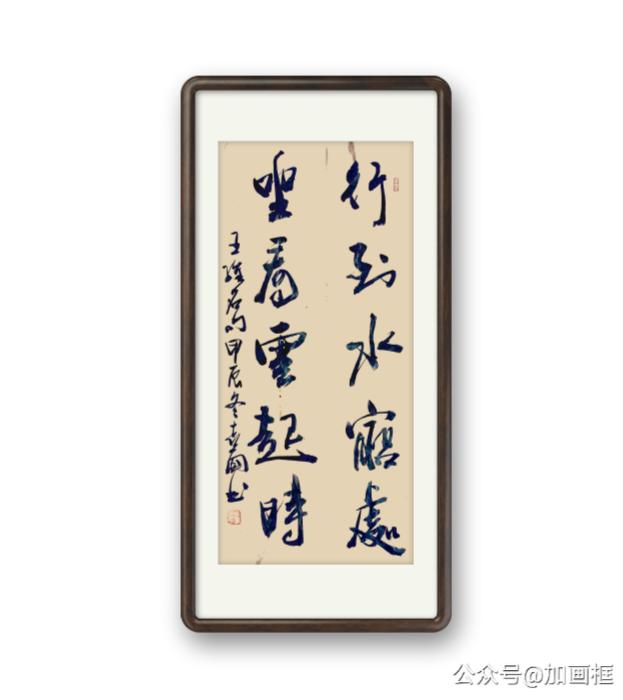 行到水窮處
坐看雲起時
王維名句甲辰冬书
公众号@加画框